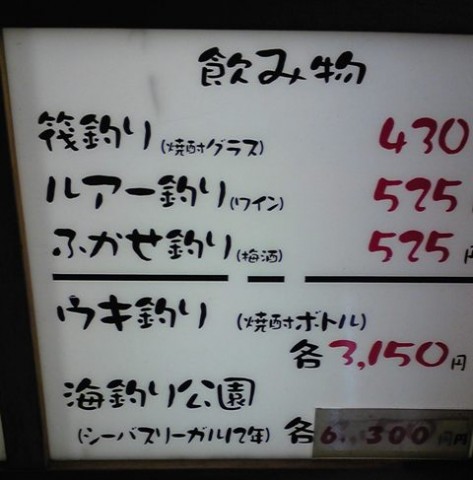 飲み物
筏釣り(焼酎グラス) 430
ルアー釣り(ワイン) 525
ふかせ釣り(梅酒) 525円
ウキ釣り (焼酎ボトル)
各3,150円
海釣り公園
(シーバスリーガル12年) 各6,300円